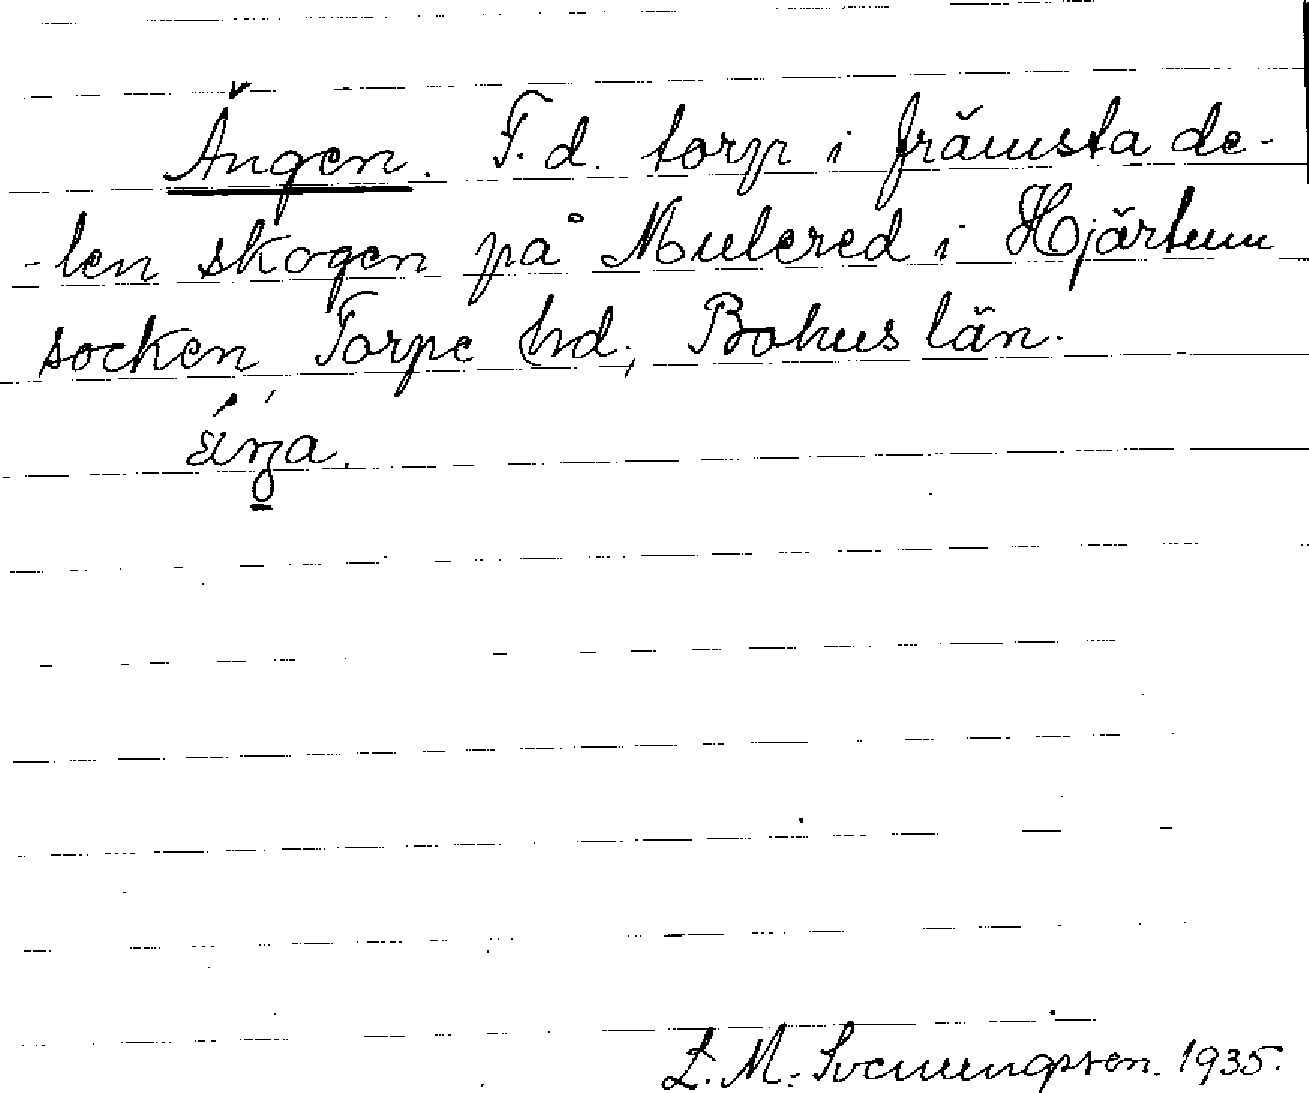 Ängen. F.d. torp i främsta de-
-len skogen på Mulered i Hjärtum
socken Torpe hd; Bohus län.
L. M. Svenungsson. 1935.